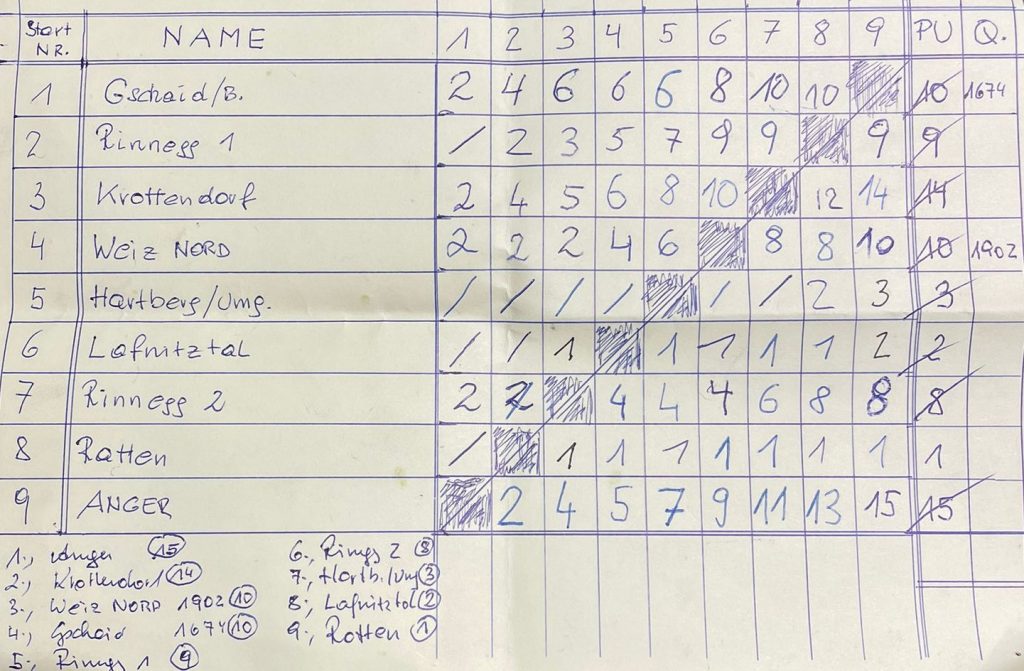 Start NR. NAME 1 2 3 4 5 6 7 8 9 PU Q.
1 Gschaid/B. 2 4 6 6 6 8 10 10 10 1674
2 Rinnegg 1 / 2 3 5 7 9 9 9 9
3 Krottendorf 2 4 5 6 8 10 12 14 14
4 Weiz NORD 2 2 2 4 6 8 8 10 10 1902
5 Hartberg/Umg. / / / / / / 2 3 3
6 Lafnitztal / / 1 1 1 1 1 2 2
7 Rinnegg 2 2 2 4 4 4 6 8 8 8
8 Ratten / 1 1 1 1 1 1 1 1
9 ANGER 2 4 5 7 9 11 13 15 15
1., Anger 15
2., Krottendorf 14
3., Weiz NORD 1902 10
4., Gschaid 1674 10
5., Rinngs 1 9
6., Rinngs 2 8
7., Hartb./Umg 3
8., Lafnitztal 2
9., Ratten 1